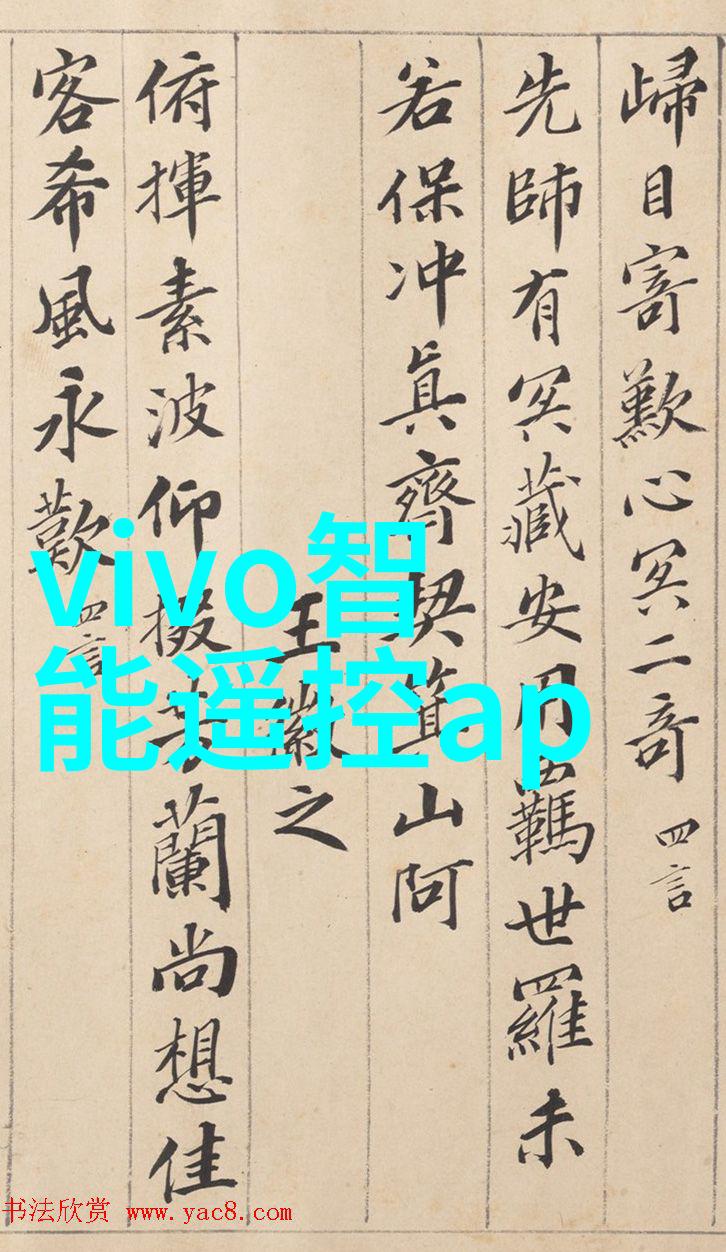 歸目寄歎心冥二奇 四言
先師有冥藏安用羈世羅未
若保冲真齊契箕山阿
王徽之
俯揮素波仰掇芳蘭尚想佳
客希風永歎 四言
vivo智
能遥控ap
书法欣赏 www.yac8.com